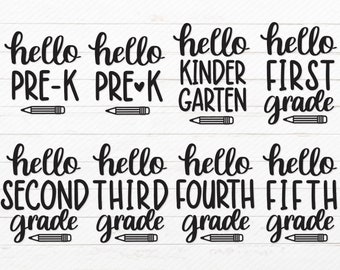 hello
PRE-K
hello
PRE♥K
hello
KINDER
GARTEN
hello
FIRST
grade
hello
SECOND
grade
hello
THIRD
grade
hello
FOURTH
grade
hello
FIFTH
grade